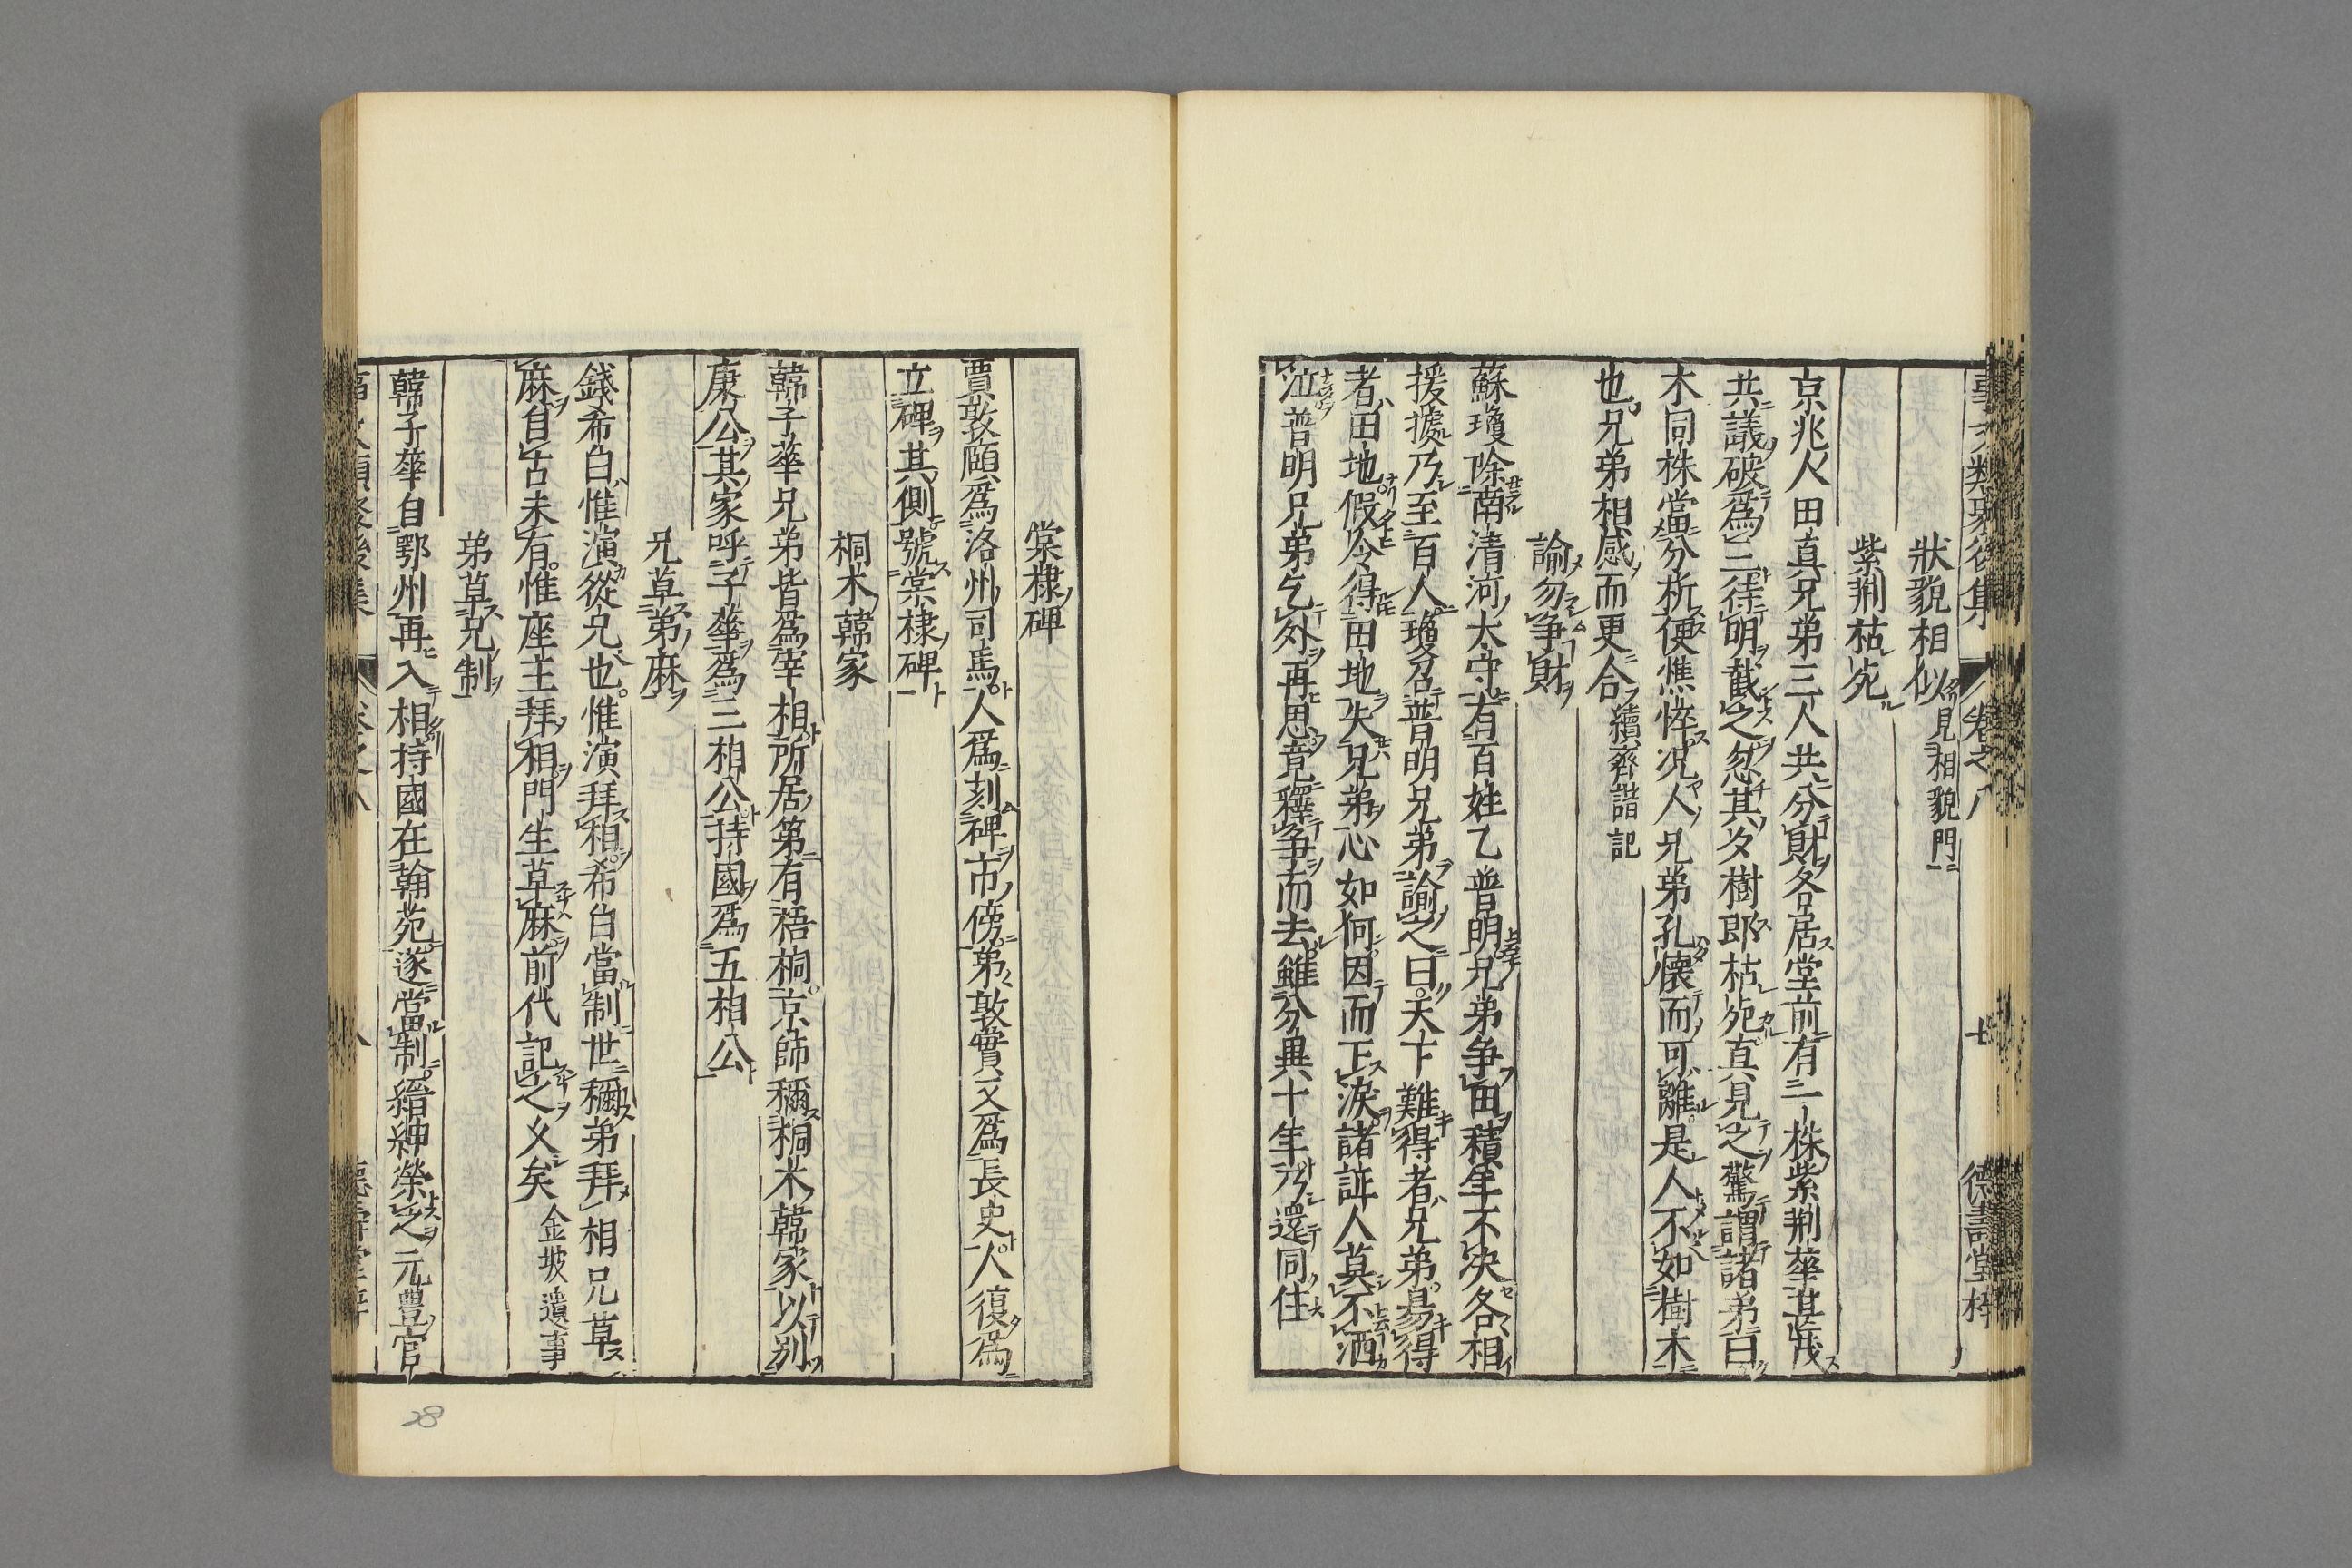 事文類聚後集 卷之八 七 德壽堂梓
狀貌相似 見相貌門
紫荆枯死
京兆人田真兄弟三人共分財各居堂前有一株紫荆華甚茂
共議破爲三待明截之忽其夕樹郎枯死真見之驚謂諸弟曰
木同株當分析便憔悴况人兄弟孔懷而可離是人不如樹木
也兄弟相感而更合 續齊諧記
諭勿争財
蘇瓊除南清河太守有百姓乙普明兄弟争田積年不决各相
援據乃至百人瓊召普明兄弟諭之曰天下難得者兄弟易得
者田地假令得田地失兄弟心如何因而下淚諸証人莫不洒
泣普明兄弟乞外再思竟釋争而去雖分異十年乃還同住
棠棣碑
賈敦頤爲洛州司馬人爲刻碑市傍弟敦實又爲長史人復爲
立碑其側號棠棣碑
桐木韓家
韓子華兄弟皆爲宰相所居第有梧桐京師穪桐木韓家以别
康公其家呼子華爲三相公持國爲五相公
兄草弟麻
錢希白惟演從兄也惟演拜相希白當制世穪弟拜相兄草
麻自古未有惟座主拜相門生草麻前代記之乆矣 金坡遺事
弟草兄制
韓子華自鄂州再入相持國在翰苑遂當制縉紳榮之元豊官